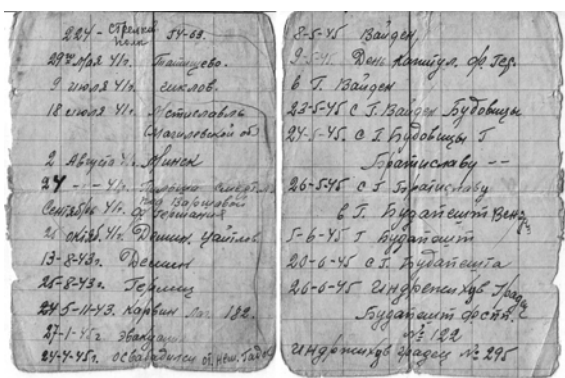 224 - стрелков
полк
29го мая 41г. Татищево.
9 июля 41г.
18 июля 41г. Мстиславль
(Магилевской обл
2 Августа 41г. Минск
24 41г.
под Варшавой
Сентябрь 41г. Германия
21 октяб. 41г.
13-8-43г.
25-8-43г.
5-11-43. Карвин лаг 182.
27-1-45г эвакуация
24-4-45г. освабадился от нем.
8-5-45 Вайден,
9-5-45 День Капитул. ф. Гер.
в Г. Вайден
23-5-45 с Г. Вайден Будовицы
24-5-45. с Г. Будовицы Г
Братиславу --
26-5-45 с Г Братиславу
в Г. Будапешт
5-6-45 Г Будапешт
20-6-45 с Г. Будапешта
26-6-45 Индржихув Градец
Будапешт
№ 122
Индржихув градец № 295